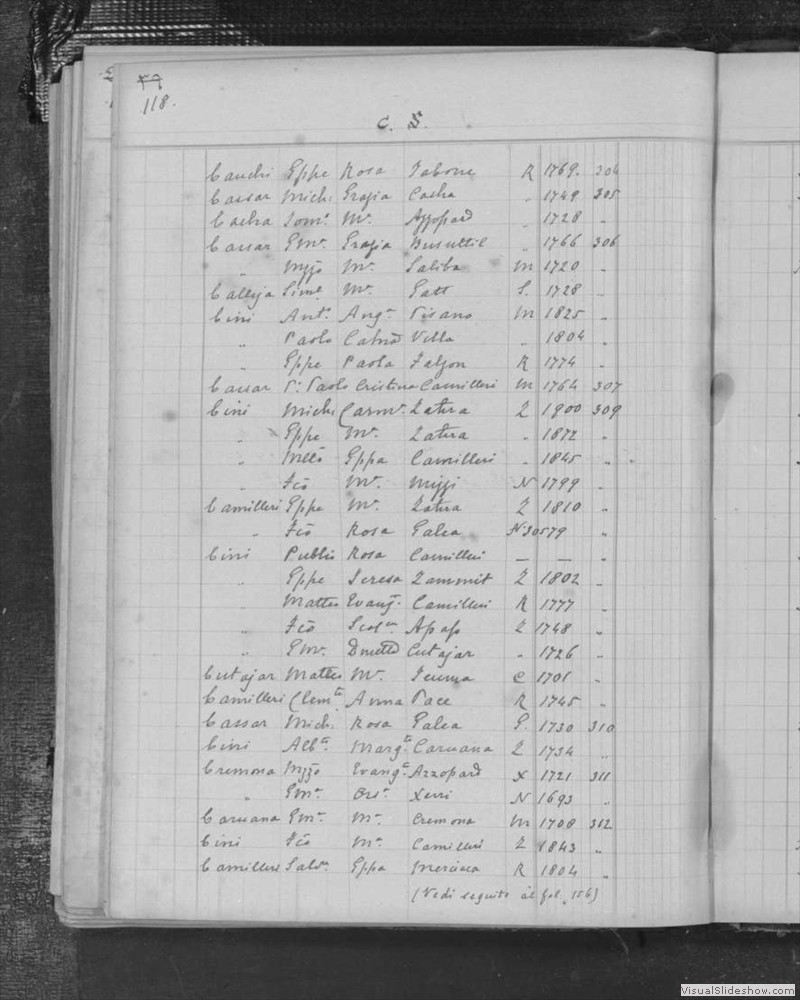 118.
C. S.
Cauchi Gppe Rosa Tabone R 1769. 304
Cassar Mich: Grazia Cacha „ 1749 305
Cacha Dom.º Mª Azzopard „ 1728 „
Cassar Gmª Grazia Busuttil „ 1766 306
„ Mzzo Mª Saliba M 1720 „
Calleja Sime Mª Gatt S. 1728 „
Cini Antº Angª Pisano M 1825 „
„ Paolo Catnª Vella „ 1804 „
„ Gppe Paola Falzon R 1774 „
Cassar Pº Paolo Cristina Camilleri M 1764 307
Cini Mich: Carmª Zahra Z 1800 309
„ Gppe Mª Zahra „ 1872 „
„ Gppa Camilleri „ 1845 „
„ Fco Mª Mizzi N 1799 „
Camilleri Gppe Mª Zahra Z 1810 „
„ Fco Rosa Galea N 30579 „
Cini Publio Rosa Camilleri — — „
„ Gppe Teresa Zammit Z 1802 „
„ Matteo Evang. Camilleri R 1777 „
„ Fco Apap Z 1748 „
„ Gmº Cutajar „ 1726 „
Cutajar Matteo Mª Teuma C 1701 „
Camilleri Clemte Anna Pace R 1745 „
Cassar Mich. Rosa Galea G. 1730 310
Cini Albº Margta Caruana Z 1734 „
Cremona Mzzo Evangª Azzopard X 1721 311
„ Gmº Orsª Xerri N 1693 „
Caruana Gmº Mª Cremona M 1708 312
Cini Fco Mª Camilleri Z 1843 „
Camilleri Salvº Gppa Mercieca R 1804 „
(Vedi seguito al fol. 156)
VisualSlideshow.com